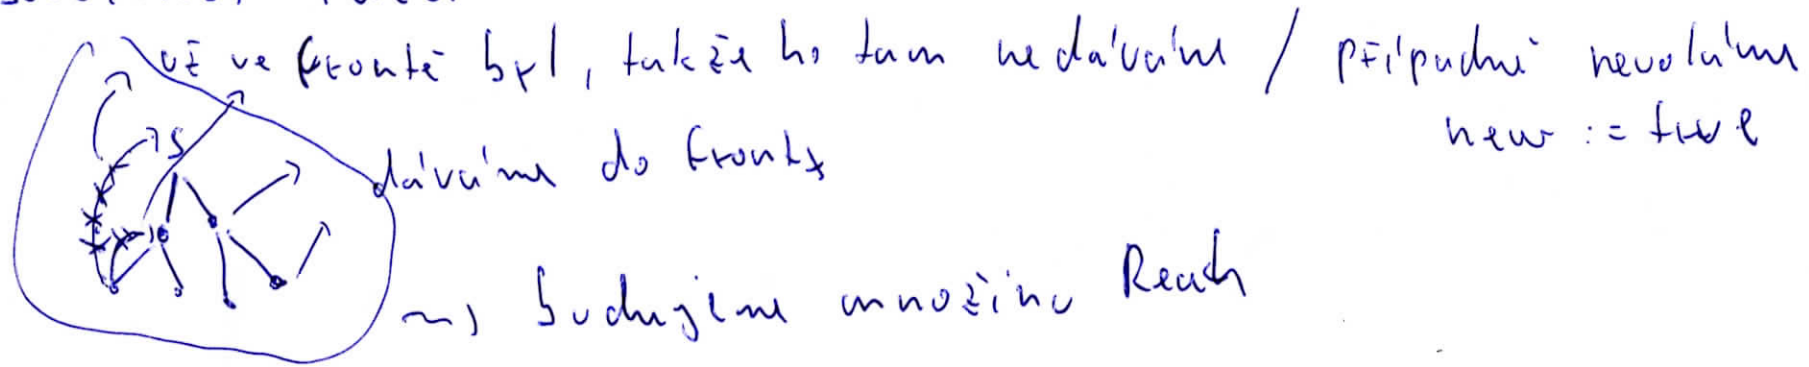 už ve frontě byl, takže ho tam nedáváme / případně nevoláme
new := true
S
dáváme do fronty
~> budujeme množinu Reach